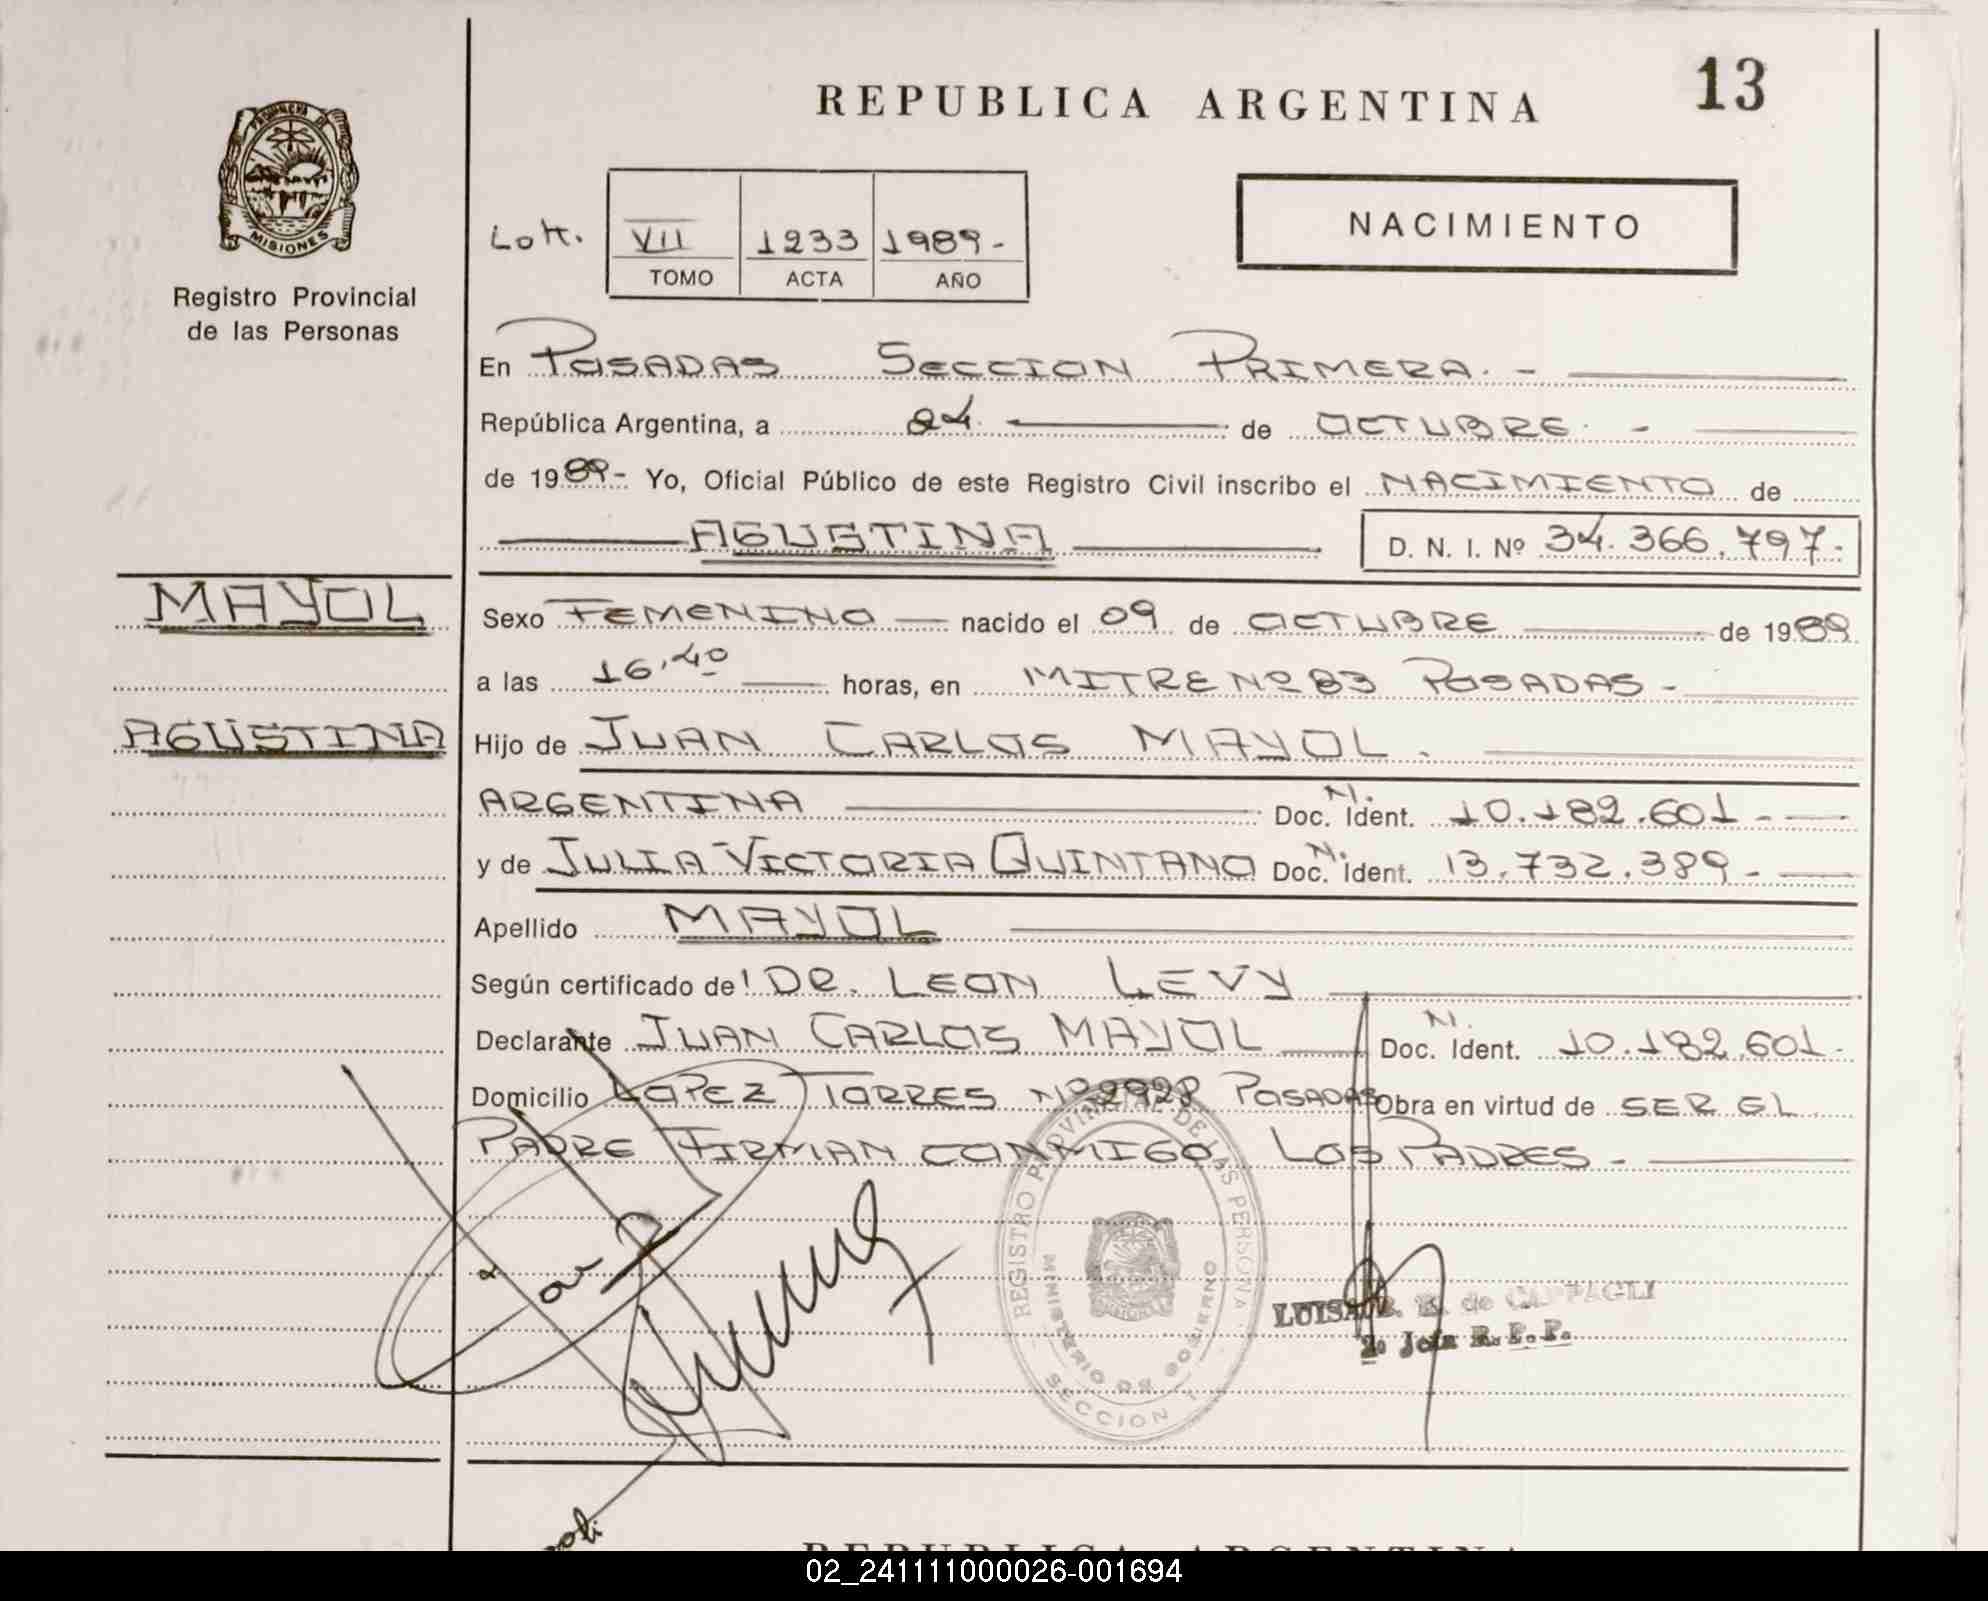 REPUBLICA ARGENTINA
13
PROVINCIA DE
MISIONES
Registro Provincial
de las Personas
NACIMIENTO
VII 1233 1989-
TOMO ACTA AÑO
En POSADAS SECCION PRIMERA. -
República Argentina, a 24. de OCTUBRE. -
de 1989- Yo, Oficial Público de este Registro Civil inscribo el NACIMIENTO de
AGUSTINA D. N. I. Nº 34.366.797.-
MAYOL
Sexo FEMENINO nacido el 09 de OCTUBRE de 1989
a las 16,40 horas, en MITRE Nº 83 POSADAS -
AGUSTINA
Hijo de JUAN CARLOS MAYOL.
ARGENTINA Doc. N. Ident. 10.182.601 -
y de JULIA VICTORIA QUINTANO Doc. N. Ident. 13.732.389 -
Apellido MAYOL
Según certificado de DR. LEON LEVY
Declarante JUAN CARLOS MAYOL Doc. N. Ident. 10.182.601-
Domicilio LOPEZ TORRES Nº 2928 POSADAS Obra en virtud de SER EL
PADRE FIRMAN CONMIGO LOS PADRES -
REGISTRO PROVINCIAL DE LAS PERSONAS
MINISTERIO DE GOBIERNO
SECCION 1
LUISA de CAPPAGLI
R.P.P.
REPUBLICA ARGENTINA
02_241111000026-001694